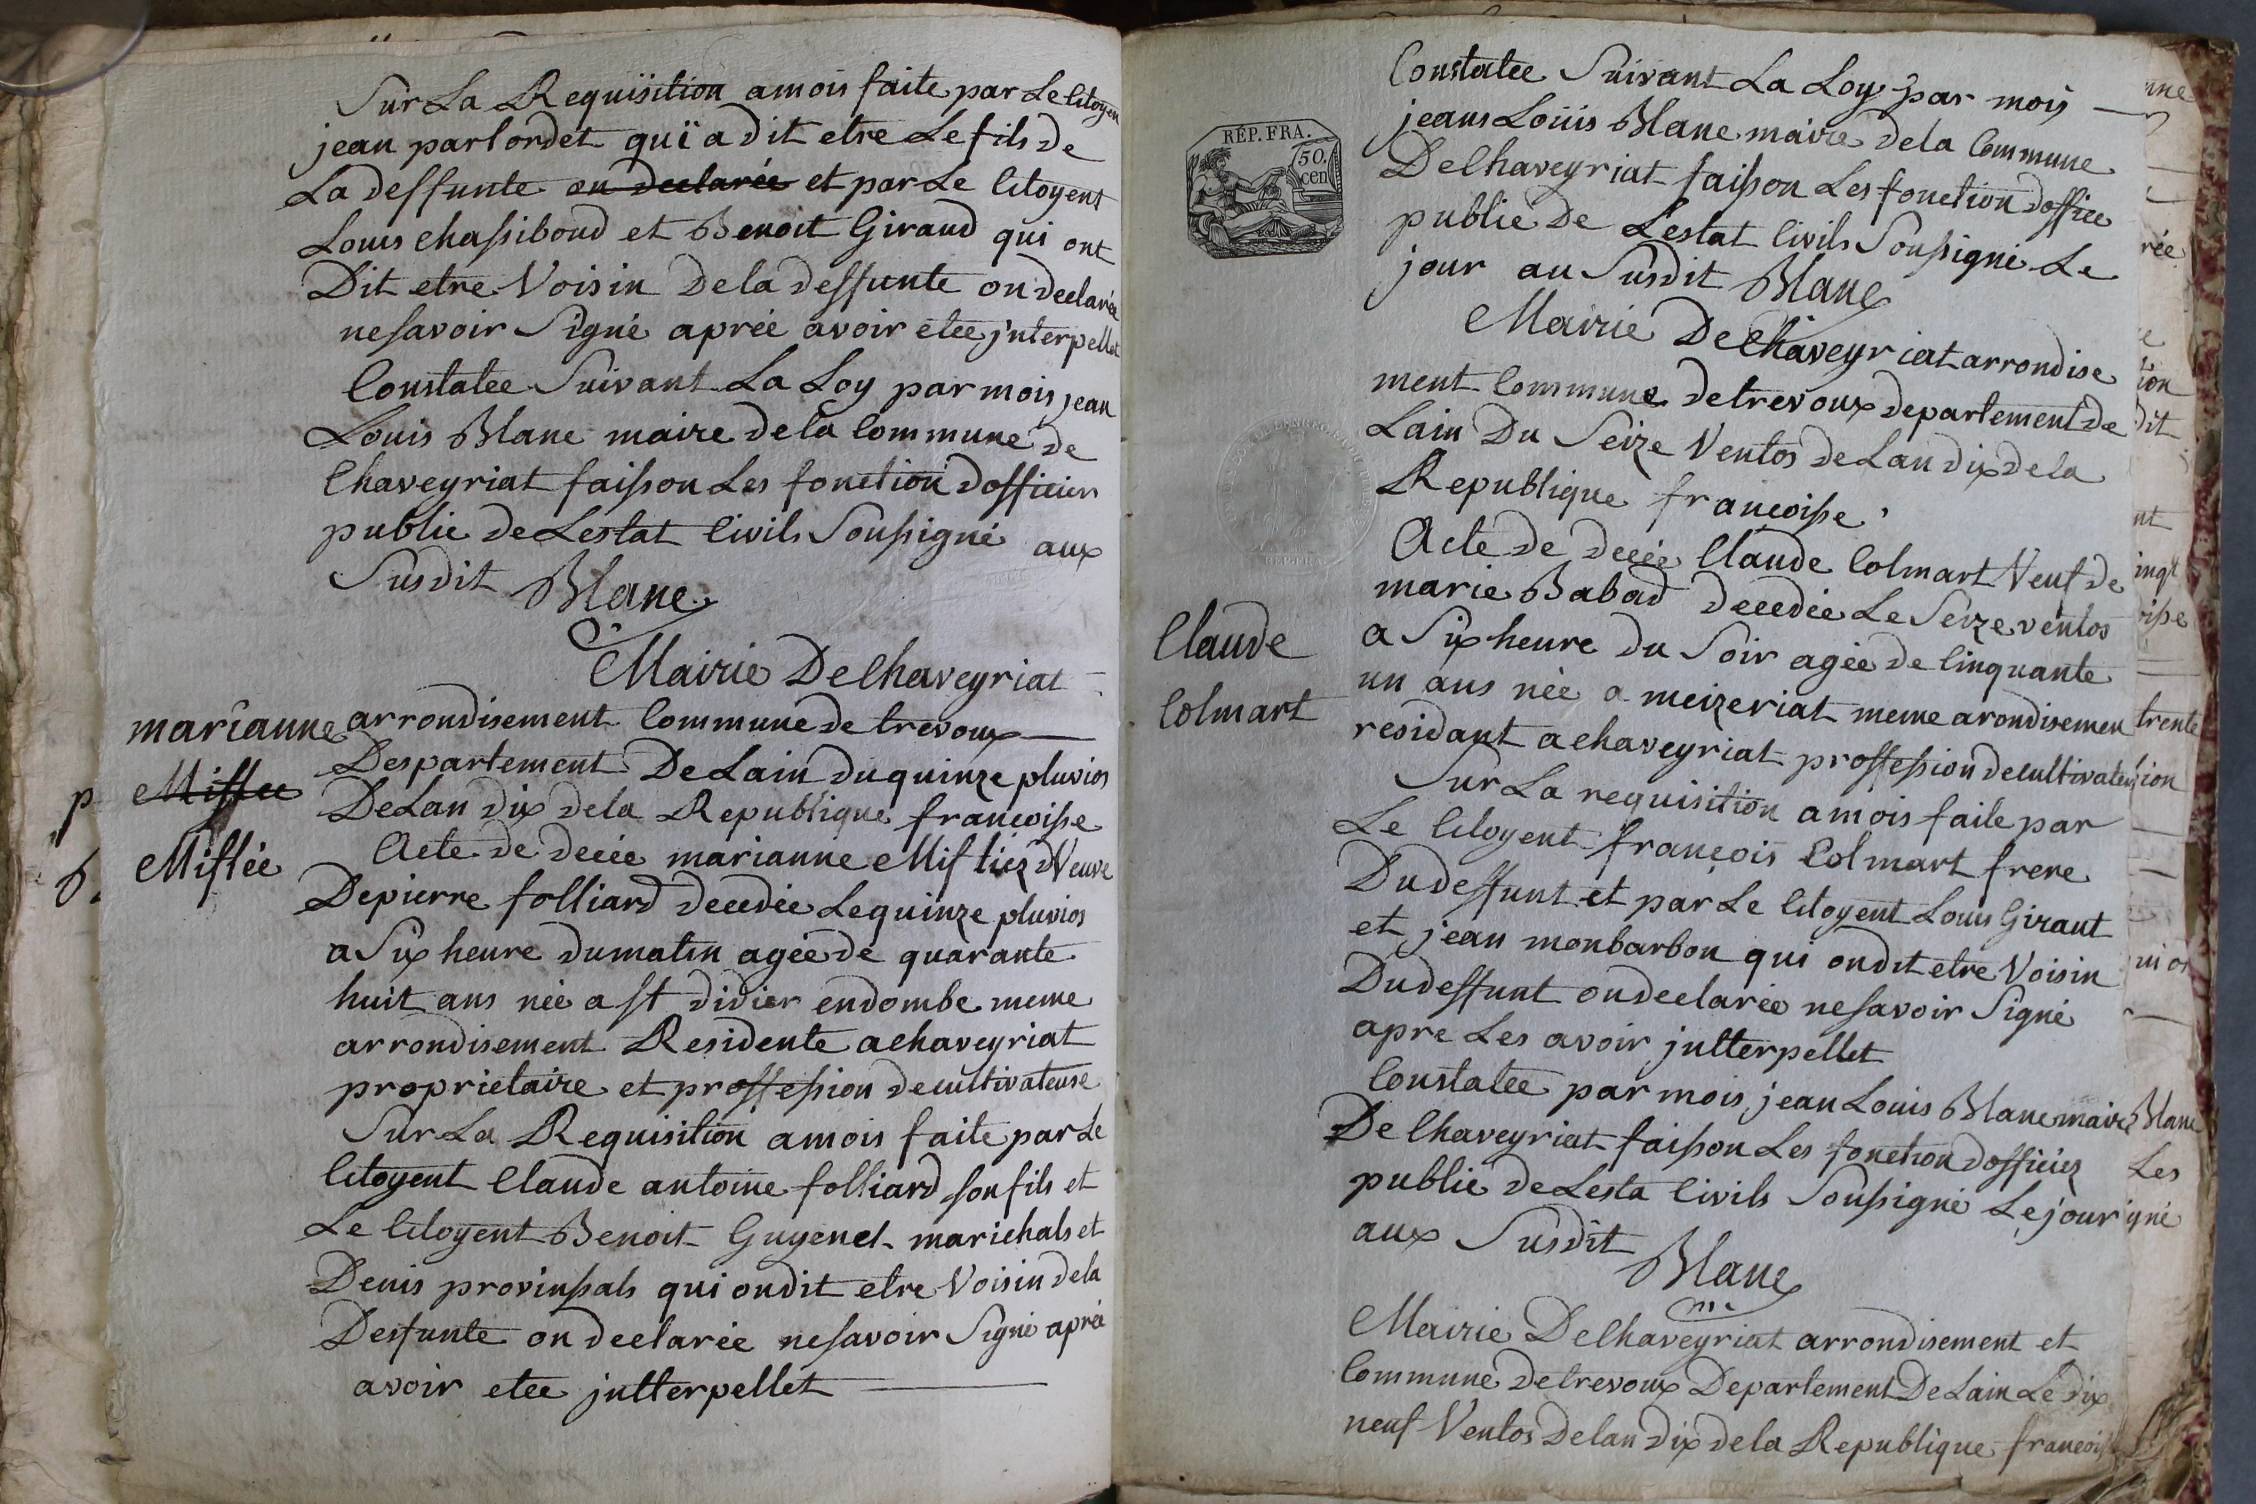 Sur La Requisition a mois faite par Le Citoyen
jean parlordet quï a dit etre Le fils de
La deffunte on declarée et par Le Citoyent
Louis chassiboud et Benoit Giraud qui ont
Dit etre Voisin De la deffunte on declarée
ne savoir Signé aprée avoir etee jnterpellet
Constatee Suivant La Loy par mois jean
Louis Blanc maire de la Commune de
Chaveyriat faisson Les fonction d'officier
public de Lestat Civils Soussigné aux
Susdit Blanc
Mairie De Chaveyriat
marianne
Missee
Mistée
p
d.
arrondisement Commune de trevoux
Despartement De Lain du quinze pluvios
De Lan dix de la Republique francoisse
Acte de decée marianne Mistiez Veuve
De pierre folliard decedée Le quinze pluvios
a Six heure du matin agée de quarante
huit ans née a St didier en dombe meme
arrondisement Residente a chaveyriat
proprietaire et proffession de cultivateuse
Sur La Requisition a mois faite par Le
Citoyent Claude antoine folliard son fils et
Le Citoyent Benoit Guyenet marichals et
Denis provinssals qui on dit etre Voisin de la
Desfunte on declarée ne savoir Signé aprée
avoir etee jntterpellet
RÉP. FRA.
50.
cen
Constatee Suivant La Loy par mois
jeans Loüis Blanc maire de la Commune
De Chaveyriat faisson Les fonction d'office
public De L'estat Civils Soussigné Le
jour au Susdit Blanc
Mairie De Chaveyriat arrondise
ment Commune de trevoux departement de
Lain Du Seize Ventos de Lan dix de la
Republique francoisse
Claude
Colmart
Acte de decée Claude Colmart Veuf de
marie Babad decedée Le Seize ventos
a Six heure du Soir agée de Cinquante
un ans née a meizeriat meme arondisemen
residant a chaveyriat proffession de cultivateur
Sur La requisition a mois faite par
Le Citoyent françois Colmart frere
Du deffunt et par Le Citoyent Louis Giraut
et jean monbarbon qui on dit etre Voisin
Du deffunt on declarée ne savoir Signé
apre Les avoir jntterpellet
Constatee par mois jean Louis Blanc maire
De Chaveyriat faisson Les fonction d'officiez
public de Lesta Civils Soussigné Le jour
aux Susdit
Blanc
Mairie De Chaveyriat arrondisement et
Commune de trevoux Departement De Lain Le dix
neuf Ventos De lan dix de la Republique